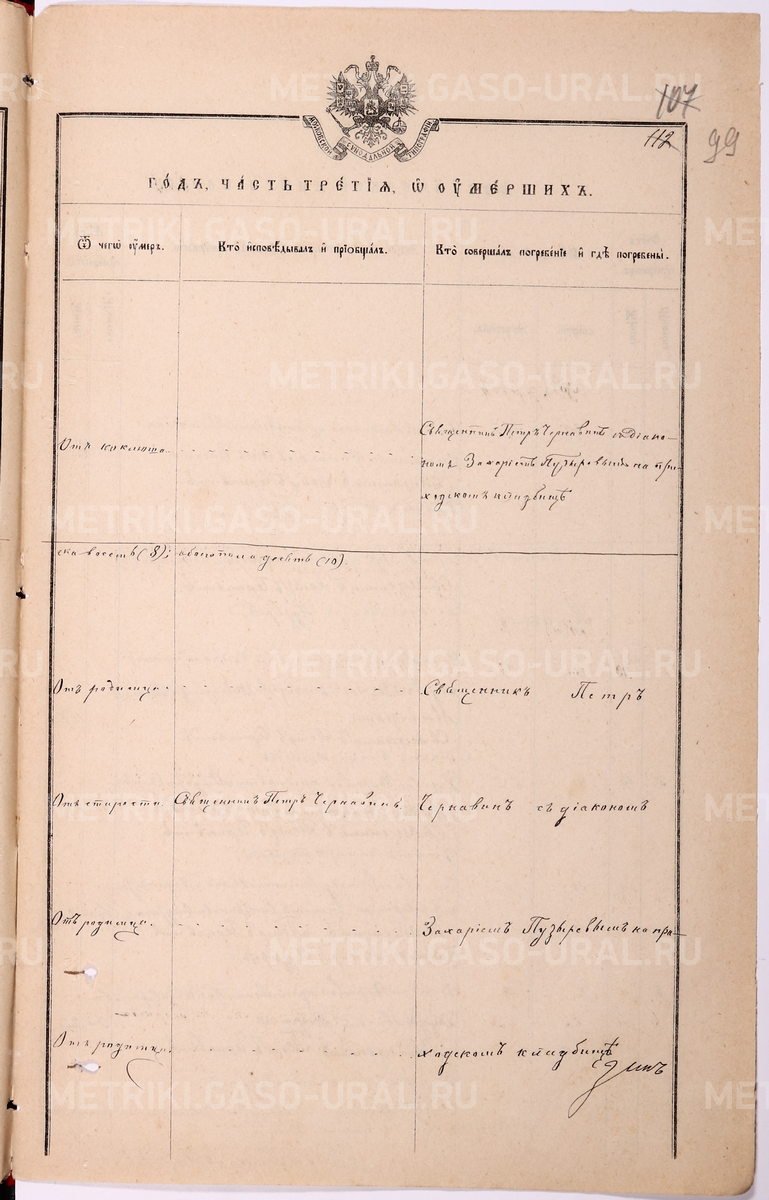 METRIKI.GASO-URAL.RU
107
112
99
МОСКОВСКОЙ СѴНОДАЛЬНОЙ ТИПОГРАФІИ
ГО́ДЪ, ЧА́СТЬ ТРЕ́ТІѦ, Ѡ҆ ОУ҆МЕ́РШИХЪ.
Ѿ чегѡ̀ оу҆́меръ.
Кто̀ и҆сповѣ́дывалъ и҆ прїобща́лъ.
Кто̀ соверша́лъ погребе́нїе и҆ гдѣ̀ погребены̀.
Отъ коклюша.
Священникъ Петръ Чернавинъ съ діако-
номъ Захаріемъ Пузыревымъ на при-
ходскомъ кладбищѣ
ска восемь (8); обоего пола десять (10).
Отъ родимца.
Священникъ Петръ
Отъ старости.
Священникъ Петръ Чернавинъ.
Чернавинъ съ діакономъ
Отъ родимца.
Захаріемъ Пузыревымъ на при-
Отъ родимца.
ходскомъ кладбищѣ